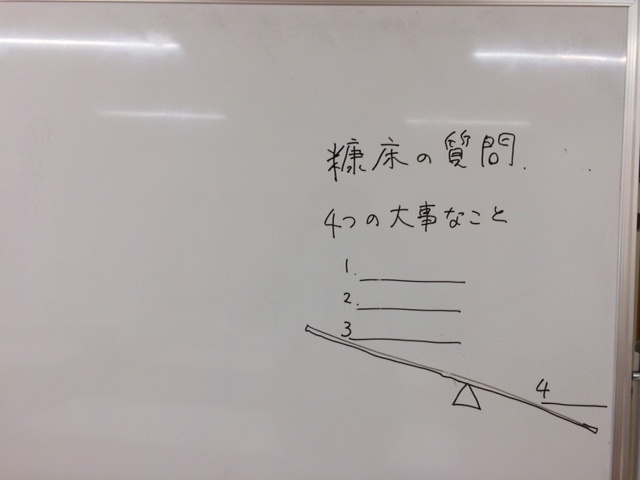 糠床の質問.
4つの大事なこと
1.
2.
3
4